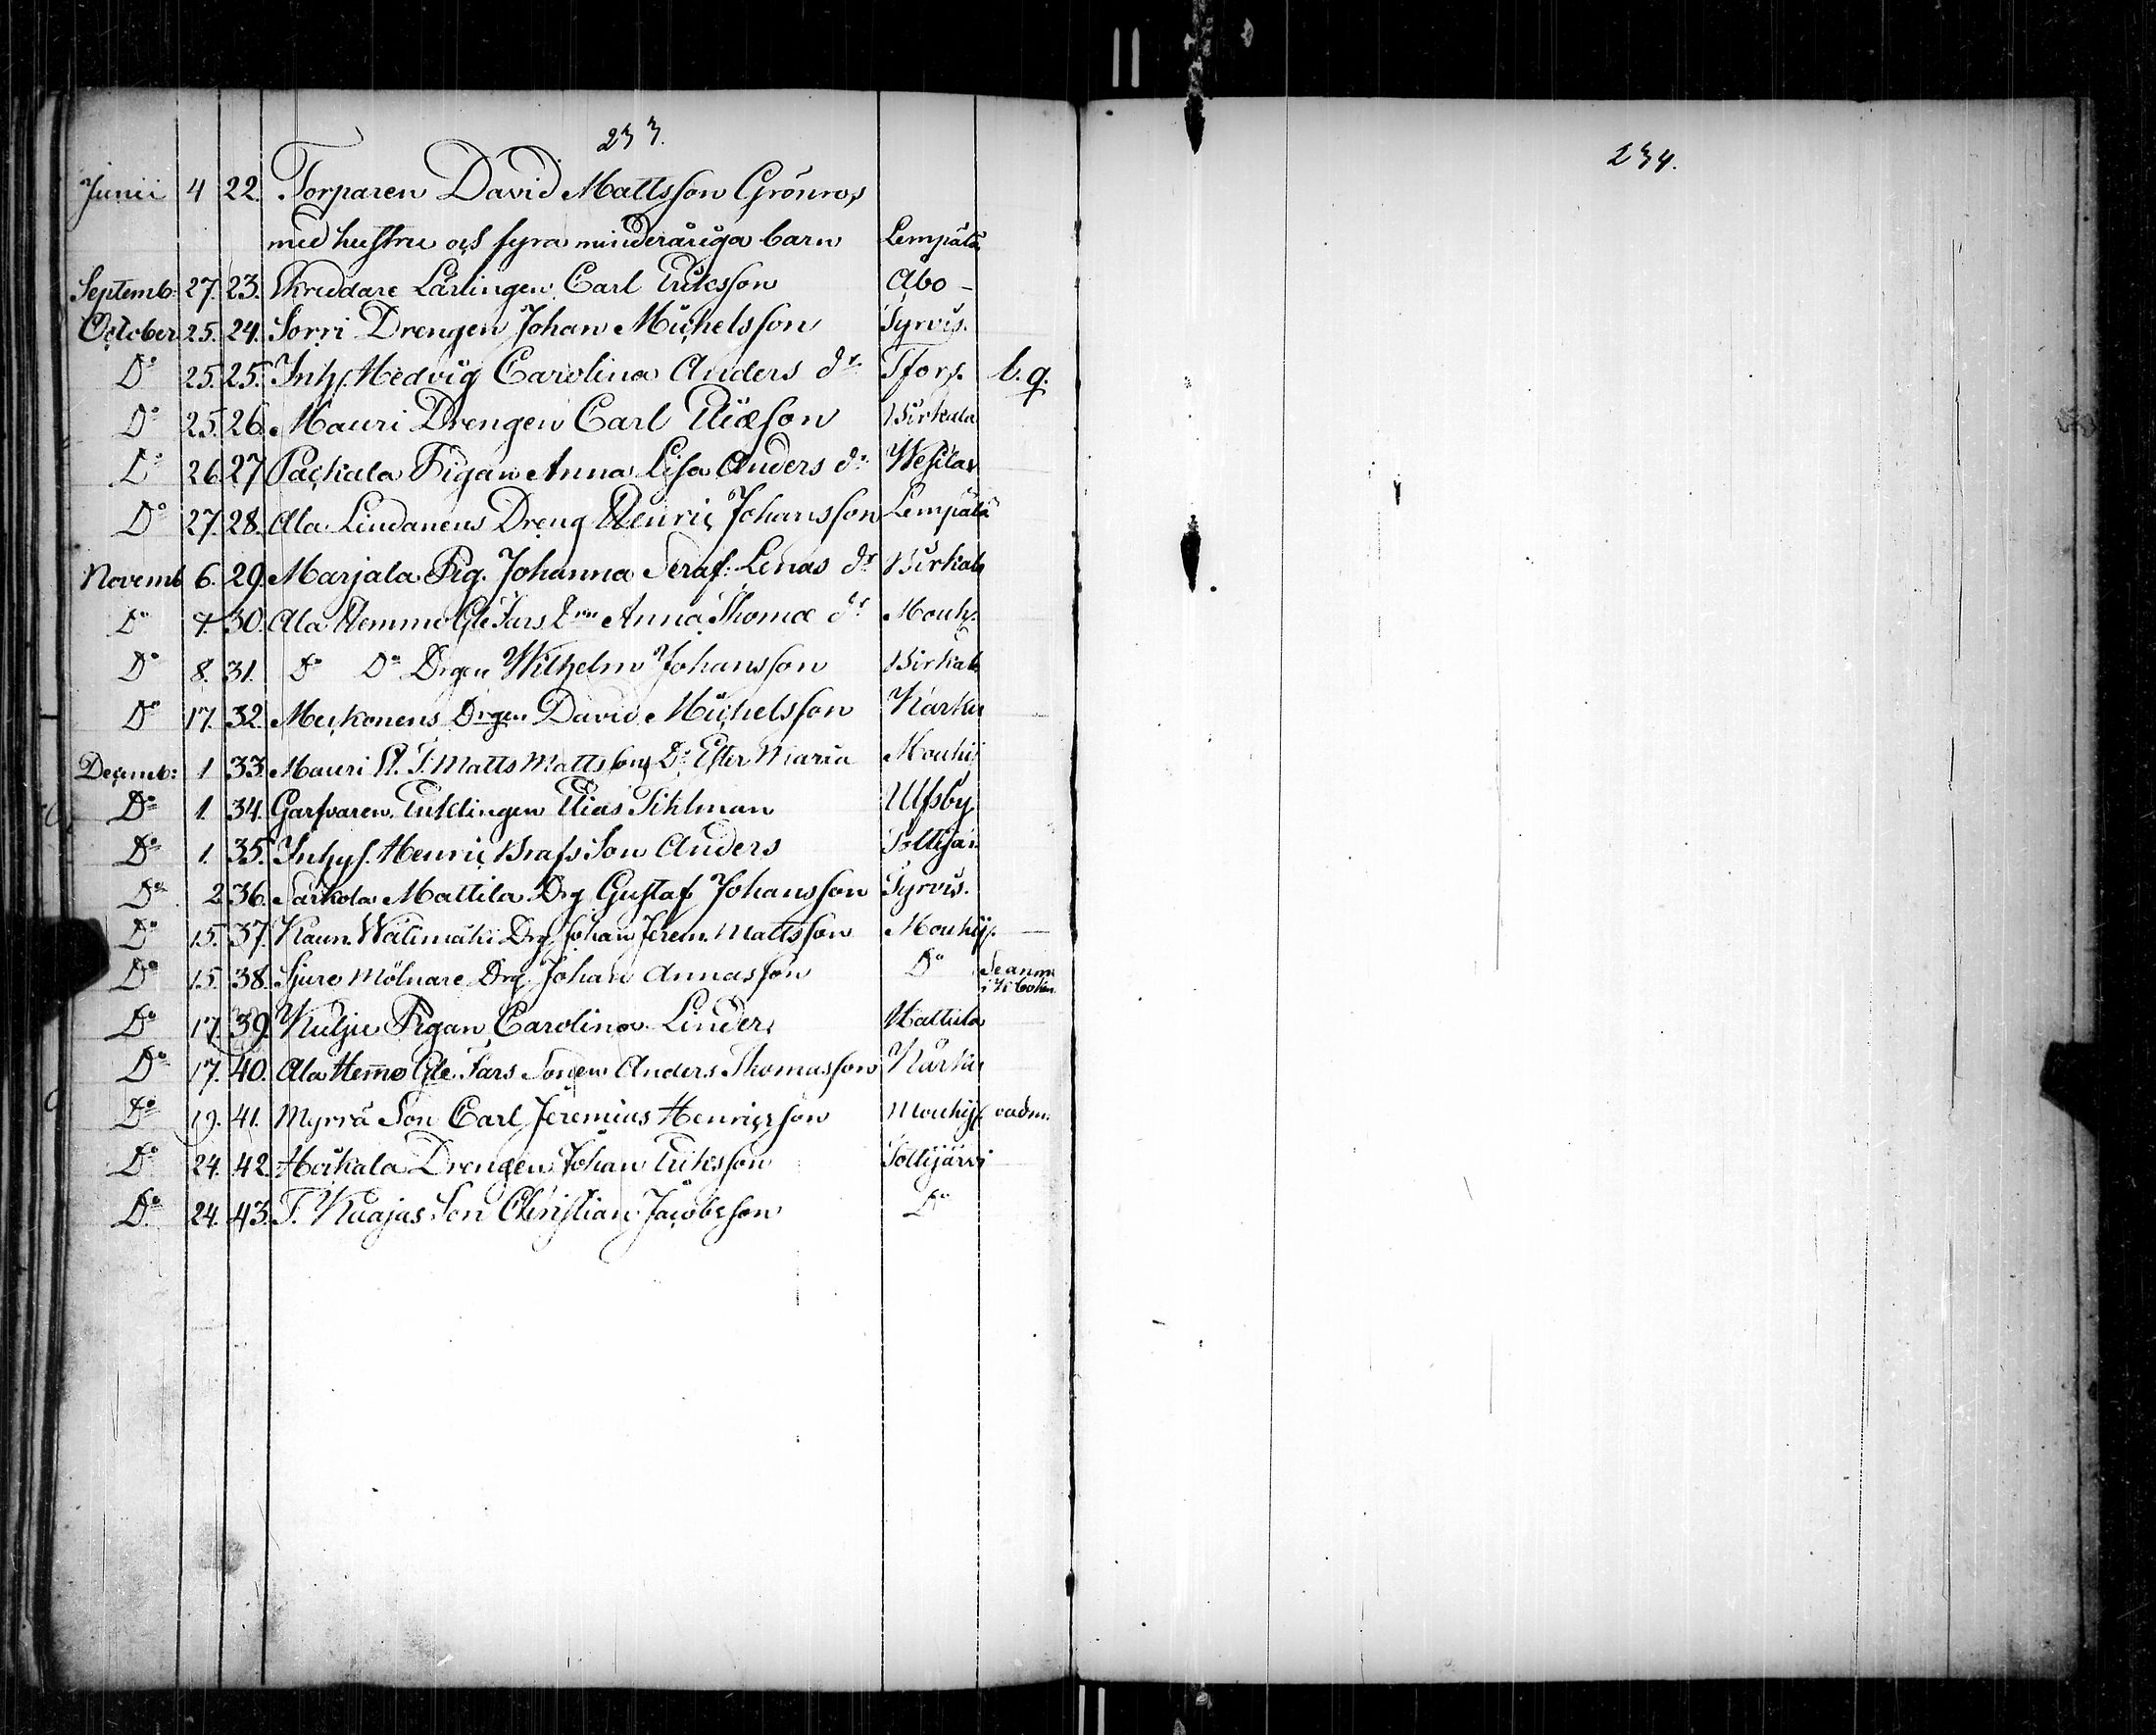 233.
234.
Junii 4 22. Torparen David Mattsson Grönros
med hustru och fyra minderåriga barn Lempälä
Septemb: 27. 23. Skreddare Lärlingen Carl Ericsson Åbo -
October 25. 24. Sorri Drengen Johan Michelsson Tyrvis.
Do 25. 25. Inh. Hedvig Carolina Anders dr Tfors. b. q.
Do 25. 26. Mauri Drengen Carl Eliæson Birkala
Do 26 27 Packala Pigan Anna Lisa Anders dr Wesilax
Do 27. 28. Ala Lindanens Dreng Henric Johansson Lempälä
Novemb 6. 29. Marjala Pig. Johanna Seraf: Lenas dr Birkala
Do 7. 30. Ala Hemmo Gle Fars Anna Thomæ dr Mouh.
Do 8. 31. Do Do Drgen Wilhelm Johansson Birkala
Do 17. 32. Meckonens Drgen David Michelsson Karku
Decemb: 1. 33. Mauri Matts Mattsons Dr Ester Maria Mouhij
Do 1. 34. Garfvaren Enklingen Elias Sihlman Ulfsby
Do 1. 35. Inhys. Henric Brafs Son Anders Töltijär.
Do 2 36. Sarkola Mattila Drg Gustaf Johansson Tyrvis.
Do 15. 37. Kaun. Wälimäki Drg Johan Jerem. Mattsson Mouhij.
Do 15. 38. Sjuro Mölnare Drg Johan Annasson Do Se anm
i K boken.
Do 17. 39. Kulju Pigan Carolina Linder Hattula
Do 17. 40. Ala Hemmo Gle Fars Sonen Anders Thomasson Karku
Do 19. 41. Myrrä Son Carl Jeremias Henricsson Mouhij. oadm.
Do 24. 42. Heikala Drengen Johan Eriksson Töltijärvi
Do 24. 43. T. Kuajas Son Christian Jacobsson Do